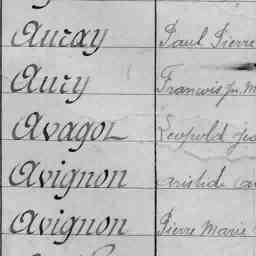 Auray Paul Pierre
Aury François
Avagot Léopold
Avignon Aristide
Avignon Pierre Marie